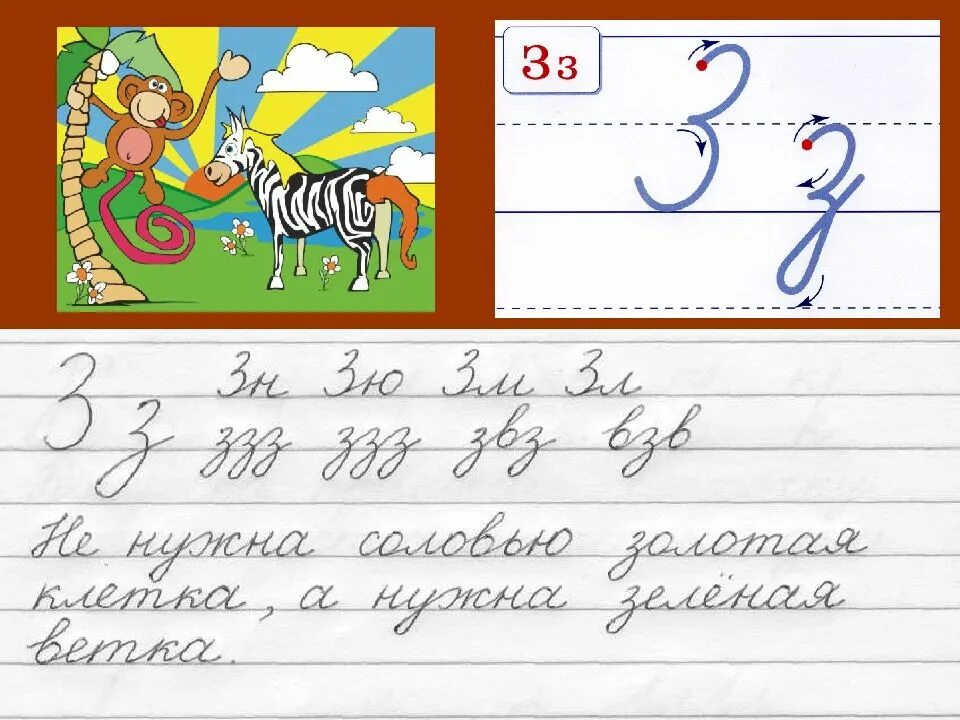 Зз
З з
З з Зн Зю Зм Зл
ззз ззз звз взв
Не нужна соловью золотая
клетка, а нужна зелёная
ветка.